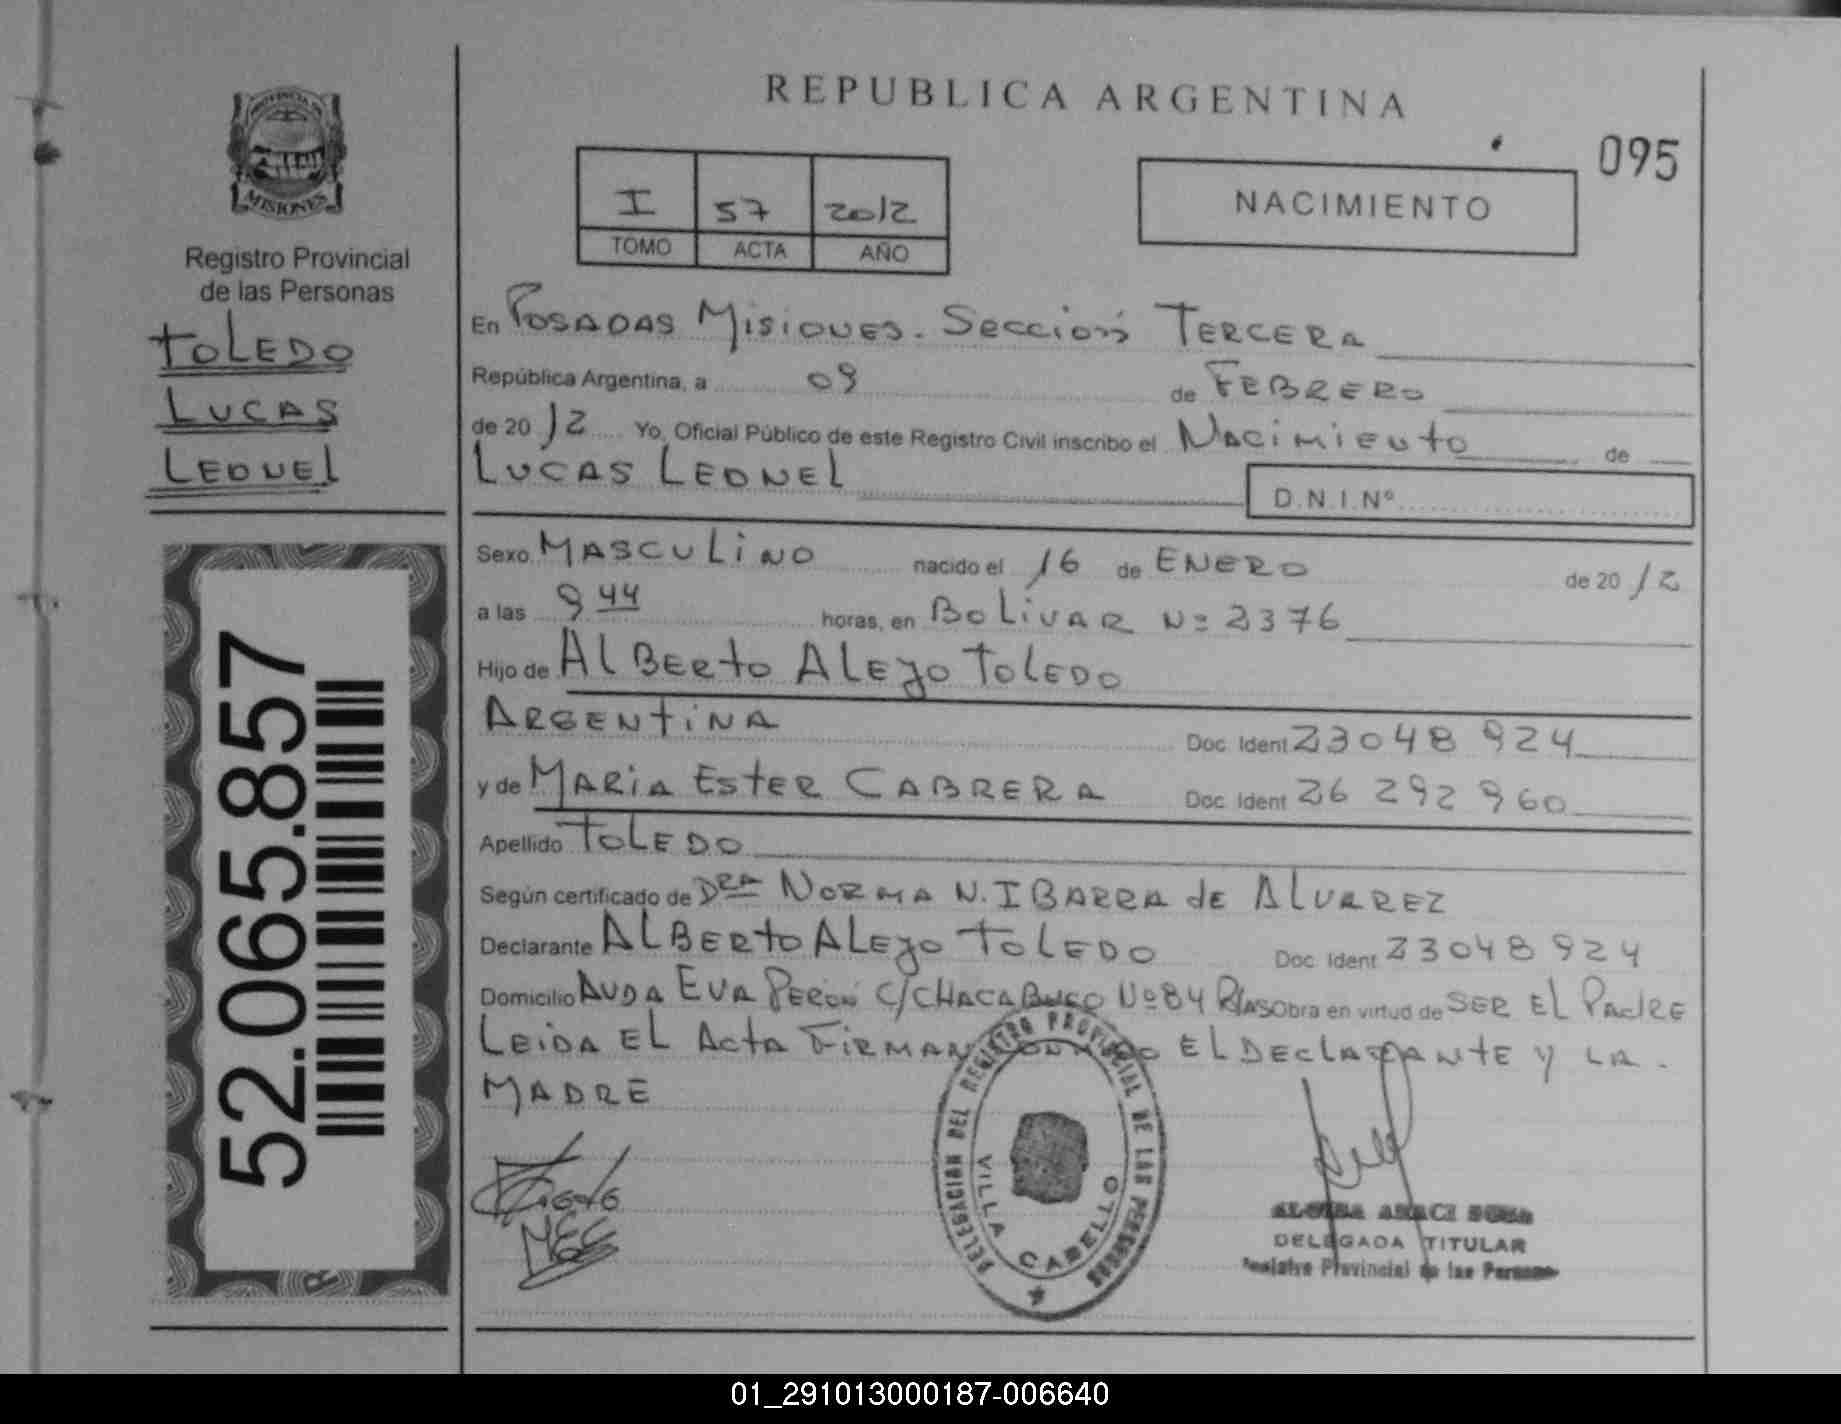 REPUBLICA ARGENTINA
095
PROVINCIA DE
MISIONES
Registro Provincial
de las Personas
TOLEDO
LUCAS
LEONEL
52.065.857
I 57 2012
TOMO ACTA AÑO
NACIMIENTO
En POSADAS MISIONES. SECCION TERCERA
República Argentina, a 09 de FEBRERO
de 2012 Yo, Oficial Público de este Registro Civil inscribo el NACIMIENTO de
LUCAS LEONEL D.N.I.Nº
Sexo MASCULINO nacido el 16 de ENERO de 2012
a las 9 44 horas, en BOLIVAR Nº 2376
Hijo de ALBERTO ALEJO TOLEDO
ARGENTINA Doc. Ident 23048924
y de MARIA ESTER CABRERA Doc. Ident 26 292 960
Apellido TOLEDO
Según certificado de DRA NORMA N. IBARRA de ALVAREZ
Declarante ALBERTO ALEJO TOLEDO Doc. Ident. 23048924
Domicilio AVDA EVA PERON C/CHACABUCO Nº84 Obra en virtud de SER EL PADRE
LEIDA EL ACTA FIRMAN EL DECLARANTE Y LA
MADRE
DELEGACION DEL REGISTRO PROVINCIAL DE LAS PERSONAS
VILLA CABELLO
DELEGADA TITULAR
Provincial de las Personas
01_291013000187-006640